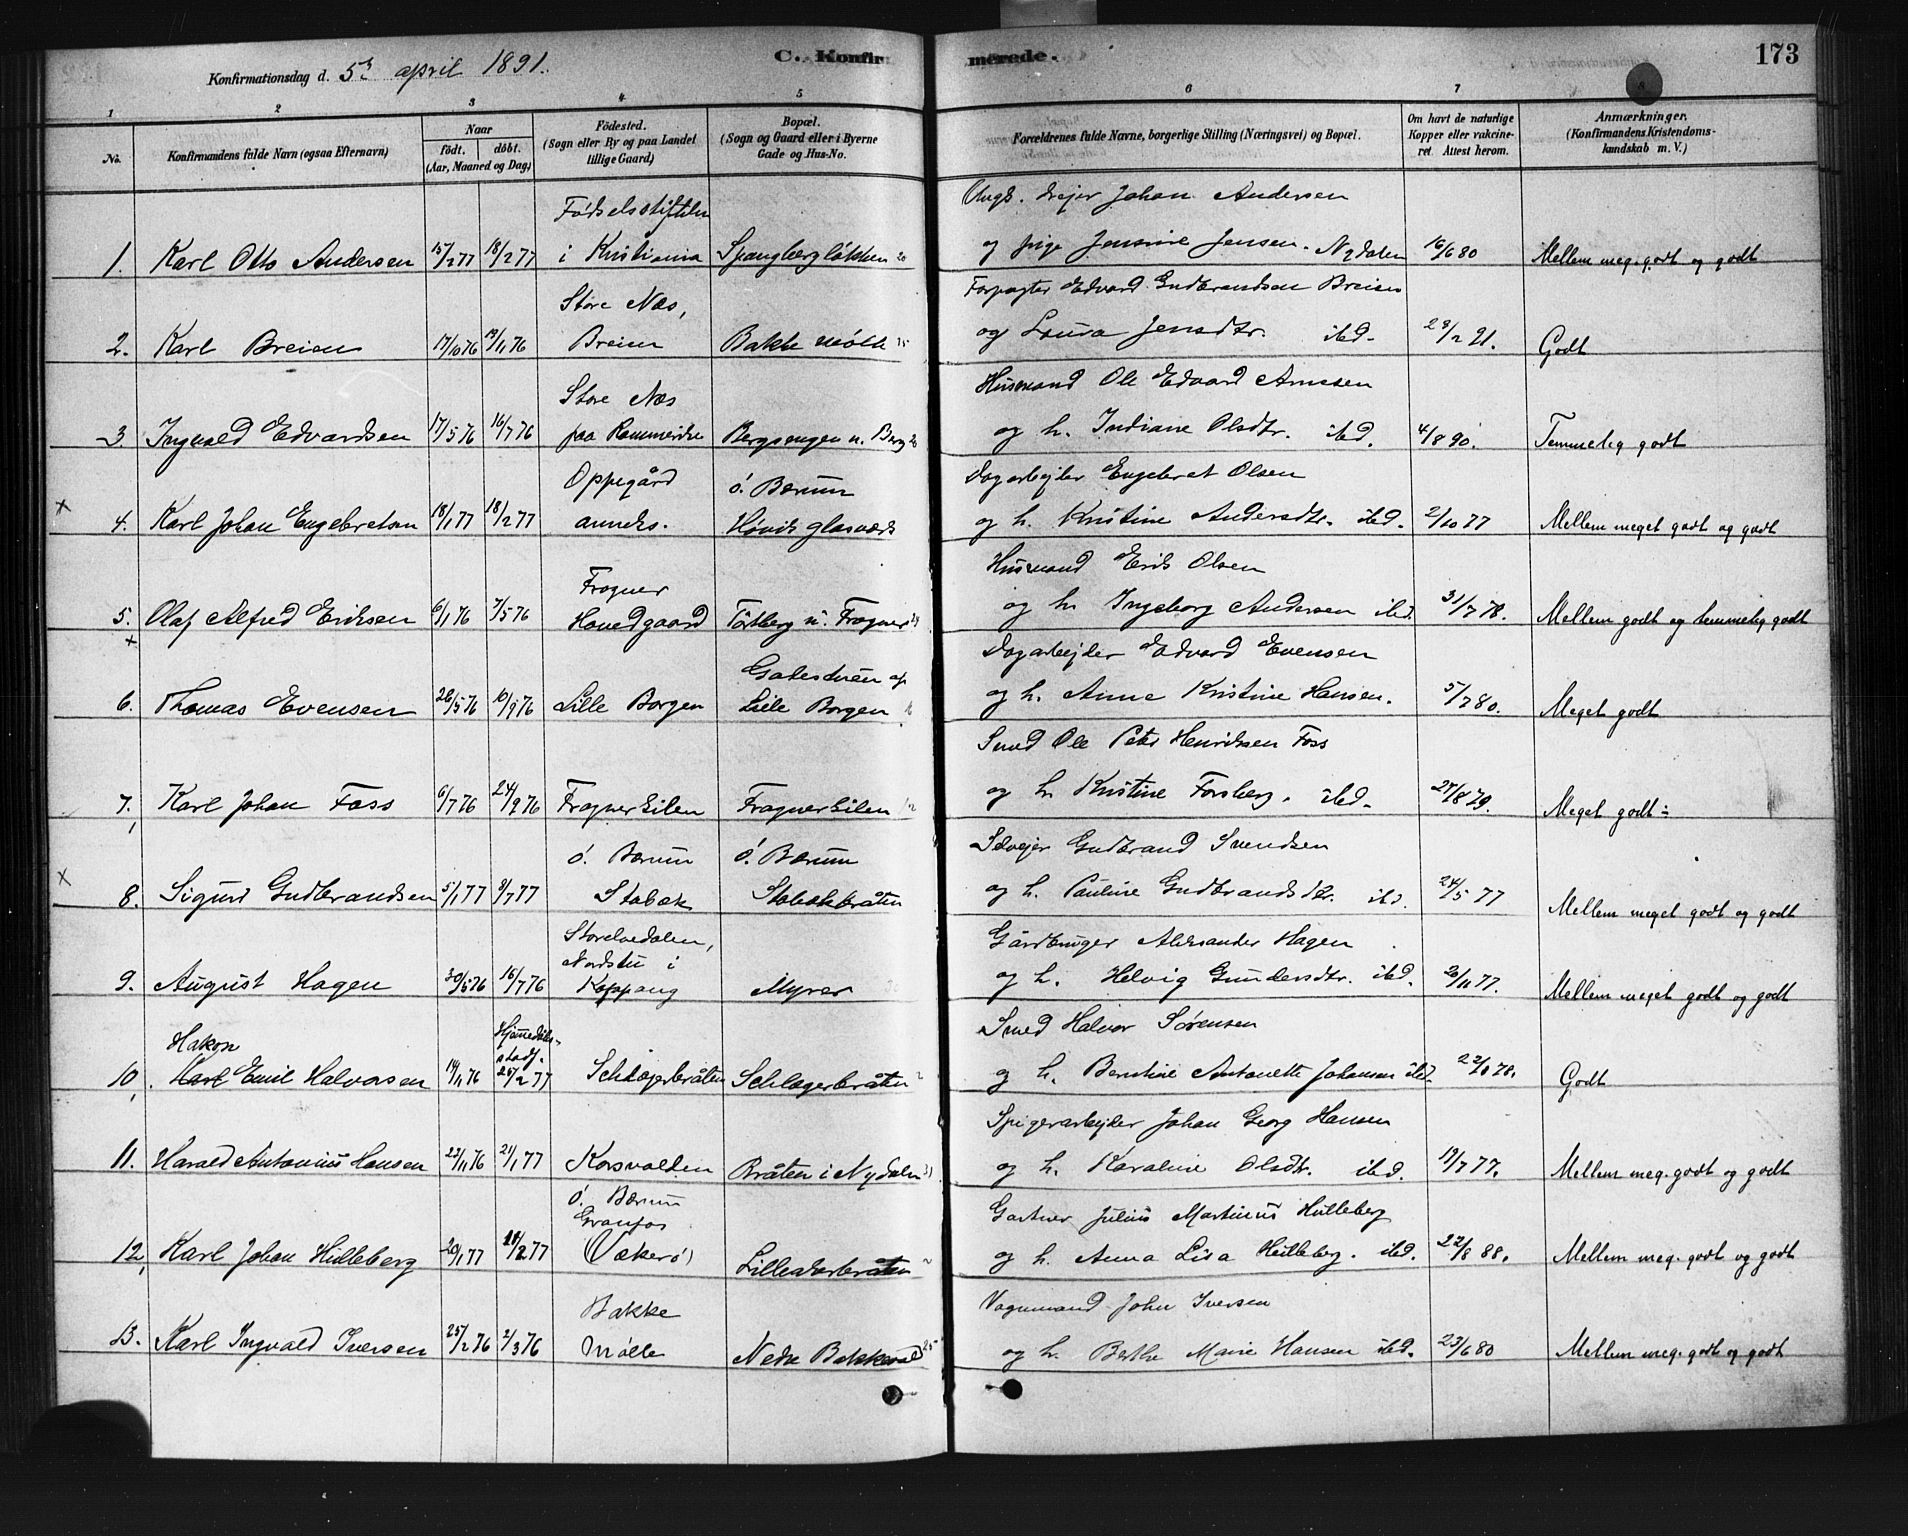 Konfirmationsdag d. 5te april 1891. C. Konfirmerede. 173
1 2 3 4 5 6 7 8
No. Konfirmandens fulde Navn (ogsaa Efternavn) Naar født. døbt. (Aar, Maaned og Dag) Fødested. (Sogn eller By og paa Landet tillige Gaard) Bopæl. (Sogn og Gaard eller i Byerne Gade og Hus-No. Forældrenes fulde Navne, borgerlige Stilling (Næringsvei) og Bopæl. Om havt de naturlige Kopper eller vakcineret. Attest herom. Anmærkninger. (Konfirmandens Kristendomskundskab m. V.)
Fødselsstiftelsen Ungk. Johan Andersen
1. Karl Otto Andersen 15/2 77 18/2 77 i Kristiania Spangbergløkken 20 og pige Jensine Jensen. Nydalen 16/6 80 Mellem meg. godt og godt
Store Næs, Forpagter Edvard Gudbrandsen Breien
2. Karl Breien 17/10 76 19/11 76 Breien Bakke mølle 25 og Laura Jensdtr. ibd. 28/2 91. Godt
Store Næs Husmand Ole Edvard Arnesen
3. Ingvald Edvardsen 17/5 76 16/7 76 paa Romerike Bergsengen u. Berg 20 og h. Indiane Olsdtr. ibd. 4/8 90. Temmelig godt
Oppegård ø. Bærum Dagarbejder Engebret Olsen
x 4. Karl Johan Engebretsen 18/1 77 18/2 77 anneks. Høvik glasværk og h. Kristine Andersdtr. ibd. 2/10 77 Mellem meget godt og godt
Frogner Husmand Erik Olsen
5. Olaf Alfred Eriksen 6/1 76 7/5 76 Hovedgaard Tørtberg u. Frogner 29 og h. Ingeborg Andersen ibd. 31/7 78. Mellem godt og temmelig godt
x Gatestuen af Dagarbejder Edvard Evensen
6. Thomas Evensen 26/5 76 10/9 76 Lille Borgen Lille Borgen 16 og h. Anne Kristine Hansen. 5/7 80. Meget godt
Smed Ole Peter Henriksen Foss
7. Karl Johan Foss 6/7 76 24/9 76 Frognerkilen Frognerkilen 12 og h. Kristine Forsberg. ibd. 27/8 79. Meget godt÷
ø. Bærum ø. Bærum Selvejer Gudbrand Svendsen
x 8. Sigurd Gudbrandsen 5/1 77 8/7 77 Stabæk Stabækbråten og h. Pauline Gudbrandsdtr. ibd. 24/5 77 Mellem meget godt og godt
Storelvedalen, Gårdbruger Aleksander Hagen
Nordstu i
9. August Hagen 30/5 76 16/7 76 Koppang Myrer og h. Helvig Gundersdtr. ibd. 26/11 77. Mellem meget godt og godt
Hakon Hjemmedøbt stadf. Smed Halvor Sørensen
10. Karl Emil Halvorsen 19/11 76 25/2 77 Schlagerbråten Schlagerbråten og h. Berntine Antonette Johansen ibd. 22/8 78. Godt
Spigerarbejder Johan Georg Hansen
11. Harald Antonius Hansen 22/11 76 21/1 77 Korsvolden Bråten i Nydalen 31 og h. Karoline Olsdtr. ibd. 19/7 77. Mellem meg. godt og godt
ø. Bærum Gartner Julius Martinus Hilleberg
Granfos
12. Karl Johan Hilleberg 20/1 77 11/2 77 (Vækerø) Lilleaderbråten og h. Anna Lisa Hilleberg. ibd. 22/8 88. Mellem meg. godt og godt
Bakke Vognmand John Iversen
13. Karl Ingvald Iversen 25/2 76 2/3 76 Mølle Nedre Bakkevold 25 og h. Berthe Marie Hansen ibd. 23/6 80 Mellem meg. godt og godt